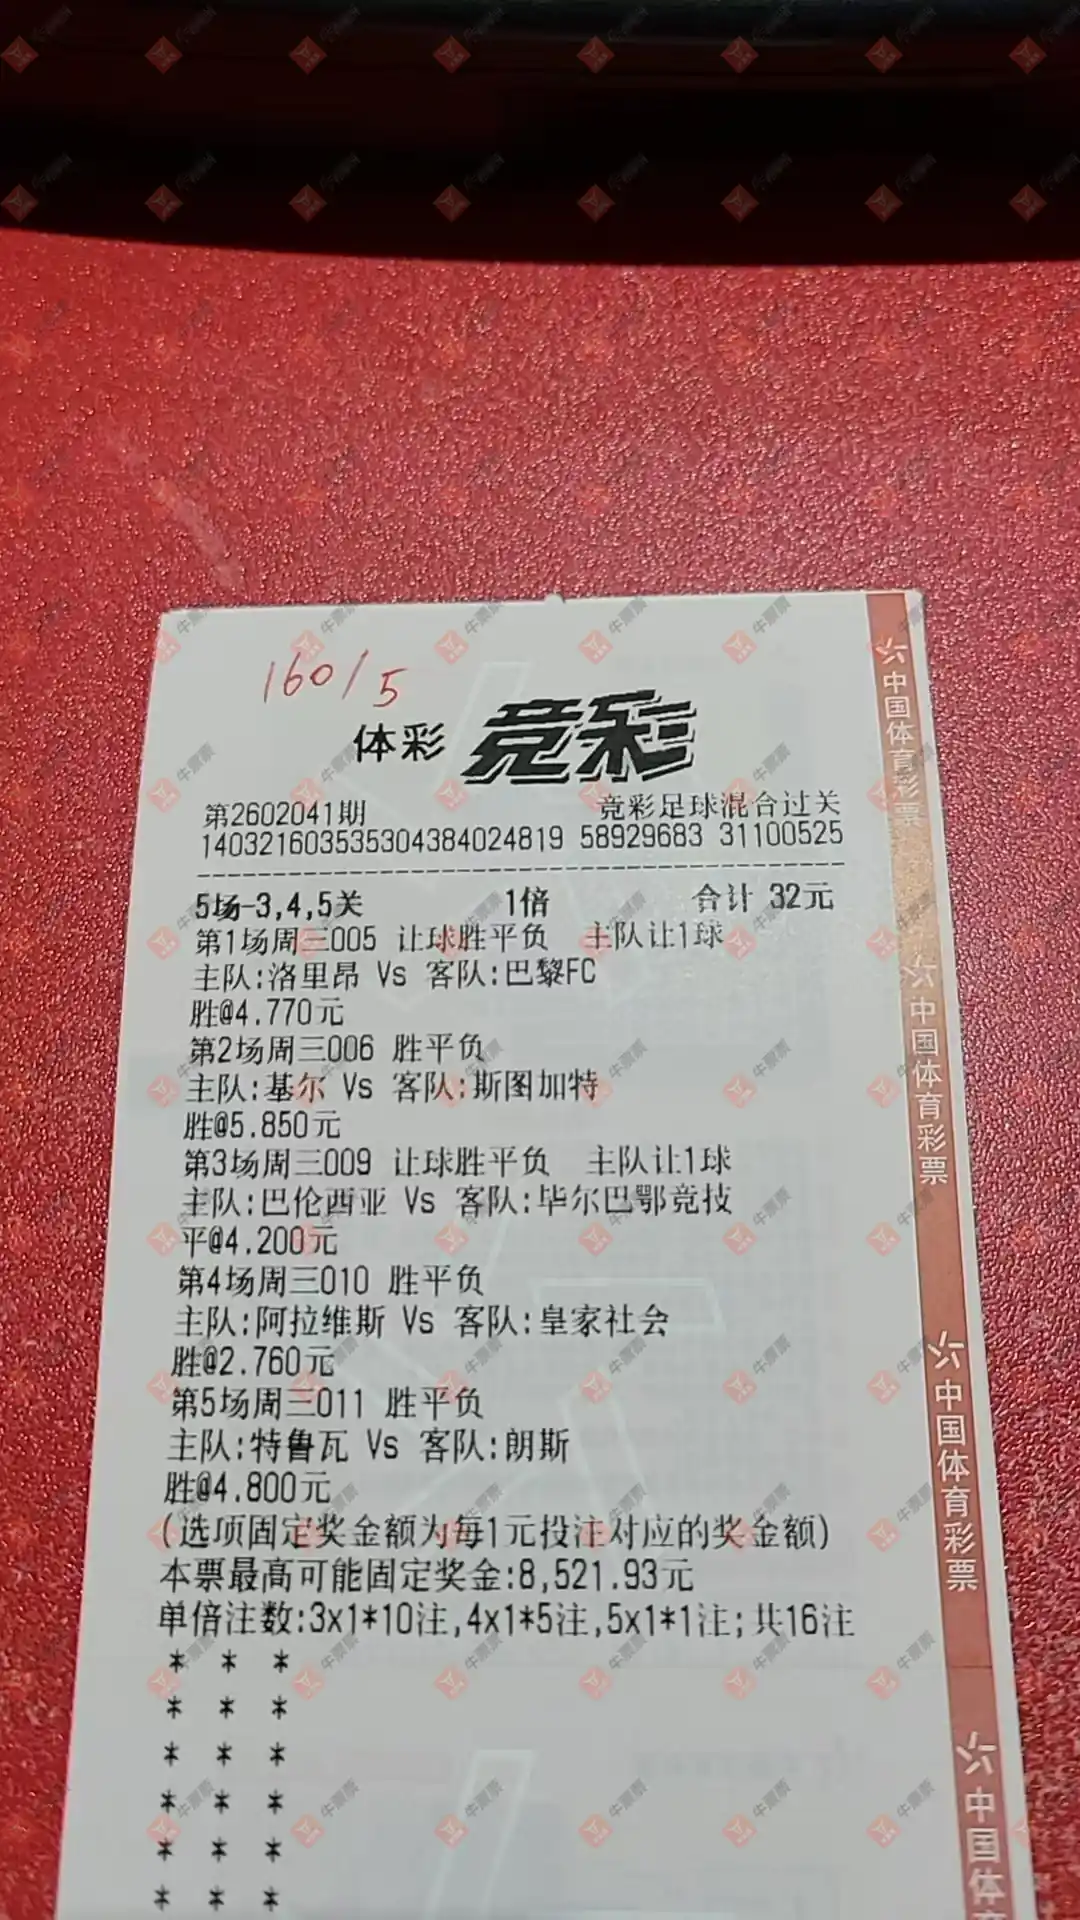 160/5
体彩 竞彩
第2602041期 竞彩足球混合过关
140321603535304384024819 58929683 31100525
5场-3,4,5关 1倍 合计 32元
第1场周三005 让球胜平负 主队让1球
主队:洛里昂 Vs 客队:巴黎FC
胜@4.770元
第2场周三006 胜平负
主队:基尔 Vs 客队:斯图加特
胜@5.850元
第3场周三009 让球胜平负 主队让1球
主队:巴伦西亚 Vs 客队:毕尔巴鄂竞技
平@4.200元
第4场周三010 胜平负
主队:阿拉维斯 Vs 客队:皇家社会
胜@2.760元
第5场周三011 胜平负
主队:特鲁瓦 Vs 客队:朗斯
胜@4.800元
(选项固定奖金额为每1元投注对应的奖金额)
本票最高可能固定奖金:8,521.93元
单倍注数:3x1*10注,4x1*5注,5x1*1注;共16注
* * *
* * *
* * *
* * *
* * *
* * *
中国体育彩票
中国体育彩票
中国体育彩票
中国体
牛票票